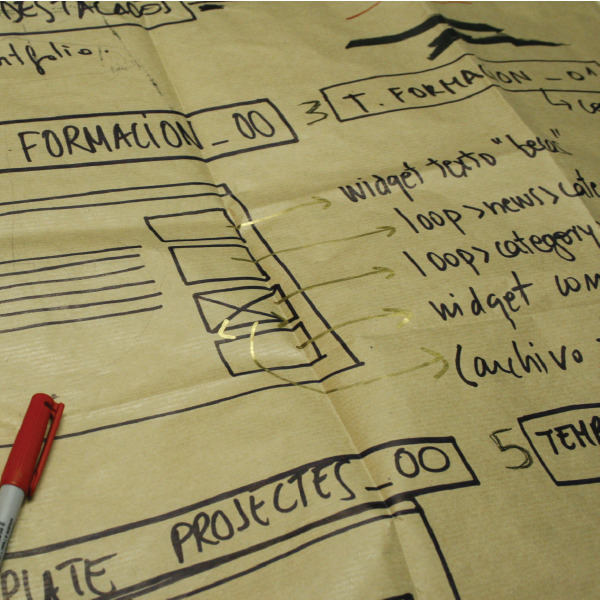 DESTACADOS
FORMACION_00
3
T. FORMACION_01
widget texto "becas"
loop>news>cate
loop>category
widget com
(archivo
5
TEMP
PLATE PROJECTES_00